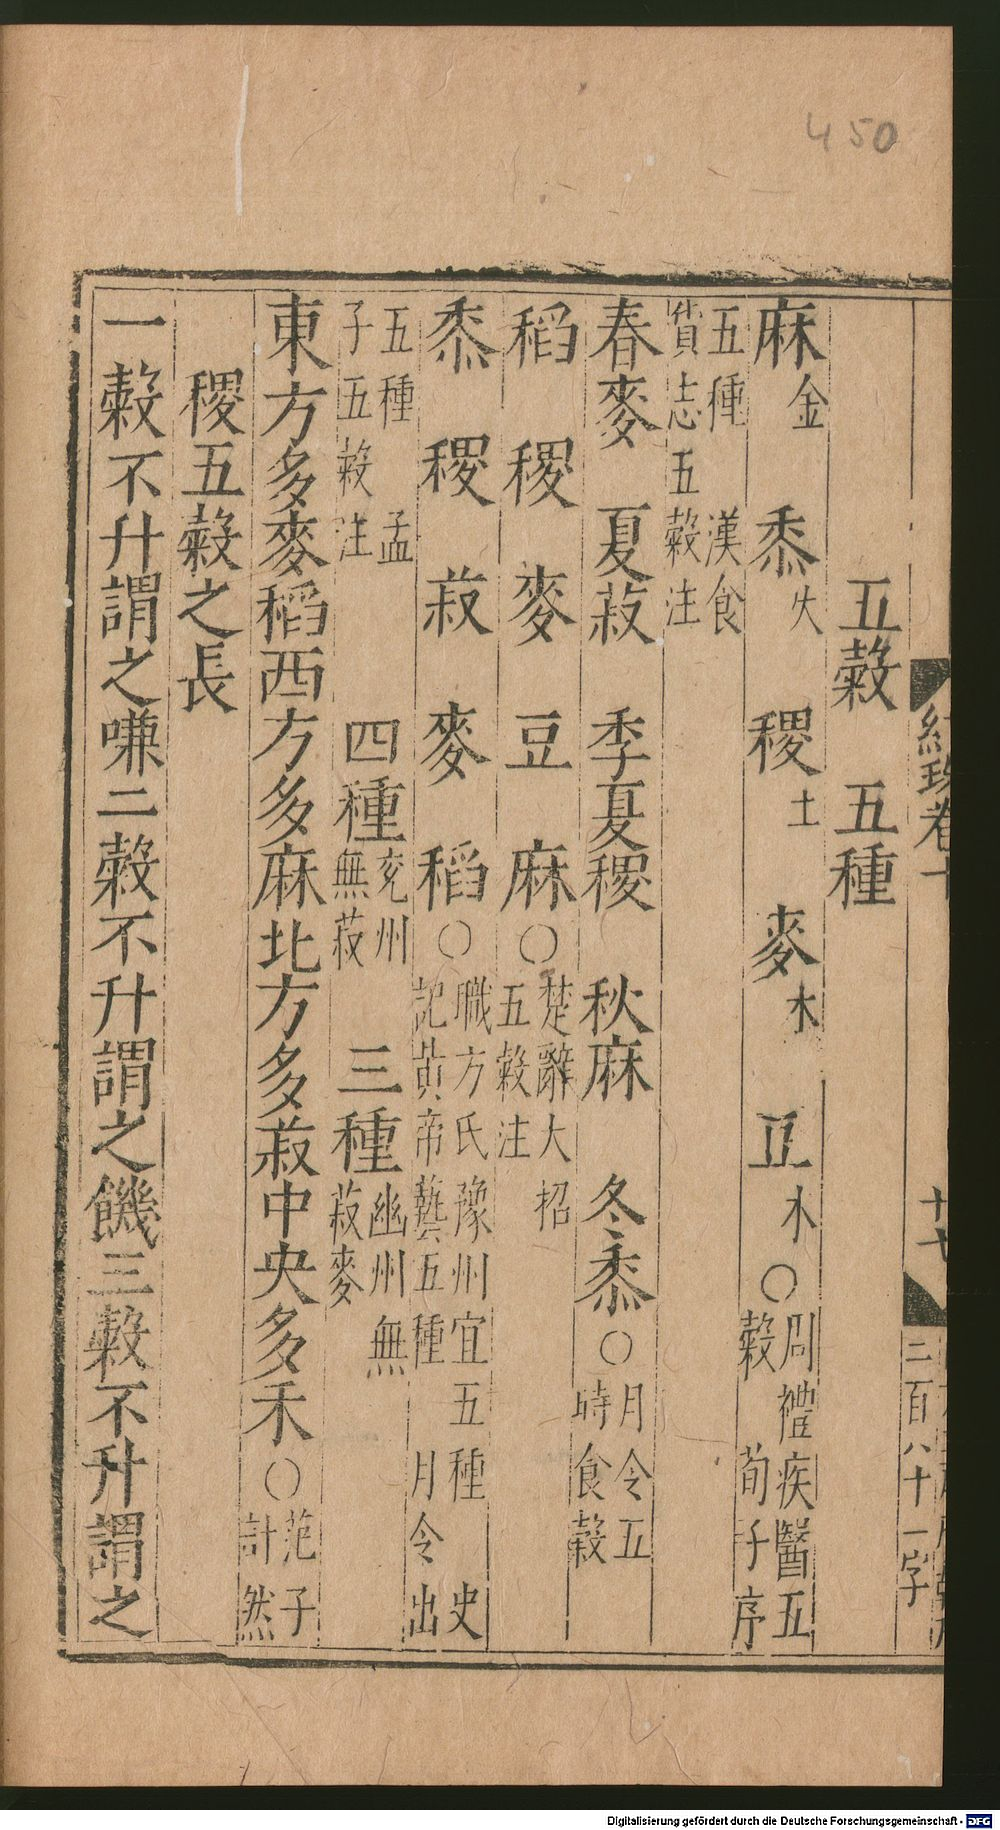 450
紺珠卷十
十七
二百八十一字
五穀 五種
麻金 黍火 稷土 麥木 豆水〇周禮疾醫五穀 荀子序
五種 漢食貨志五穀注
春麥 夏菽 季夏稷 秋麻 冬黍〇月令五時食穀
稻 稷 麥 豆 麻〇楚辭大招五穀注
黍 稷 菽 麥 稻〇職方氏豫州宜五種 史記黃帝藝五種 月令出
五種 孟子五穀注 四種兗州無菽 三種幽州無菽麥
東方多麥稻西方多麻北方多菽中央多禾〇范子計然
稷五穀之長
一穀不升謂之嗛二穀不升謂之饑三穀不升謂之
Digitalisierung gefördert durch die Deutsche Forschungsgemeinschaft - DFG